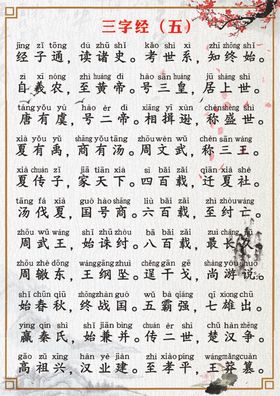 三字经（五）
jīng zǐ tōng dú zhū shǐ kǎo shì xì zhī zhōng shǐ
经子通，读诸史。考世系，知终始。
zì xī nóng zhì huáng dì hào sān huáng jū shàng shì
自羲农，至黄帝。号三皇，居上世。
táng yǒu yú hào èr dì xiāng yī xùn chēng shèng shì
唐有虞，号二帝。相揖逊，称盛世。
xià yǒu yǔ shāng yǒu tāng zhōu wén wǔ chēn sān wáng
夏有禹，商有汤。周文武，称三王。
xià chuán zǐ jiā tiān xià sì bǎi zǎi qiān xià shè
夏传子，家天下。四百载，迁夏社。
tāng fá xià guó hào shāng liù bǎi zǎi zhì zhòu wáng
汤伐夏，国号商。六百载，至纣亡。
zhōu wǔ wáng shǐ zhū zhòu bā bǎi zǎi zuì cháng jiǔ
周武王，始诛纣。八百载，最长久。
zhōu zhé dōng wáng gāng zhuì chěng gān gē shàng yóu shuì
周辙东，王纲坠。逞干戈，尚游说。
shǐ chūn qiū zhōng zhàn guó wǔ bà qiáng qī xióng chū
始春秋，终战国。五霸强，七雄出。
yíng qín shì shǐ jiān bìng chuán èr shì chǔ hàn zhēng
嬴秦氏，始兼并。传二世，楚汉争。
gāo zǔ xīng hàn yè jiàn zhì xiào píng wáng mǎng cuàn
高祖兴，汉业建。至孝平，王莽篡。